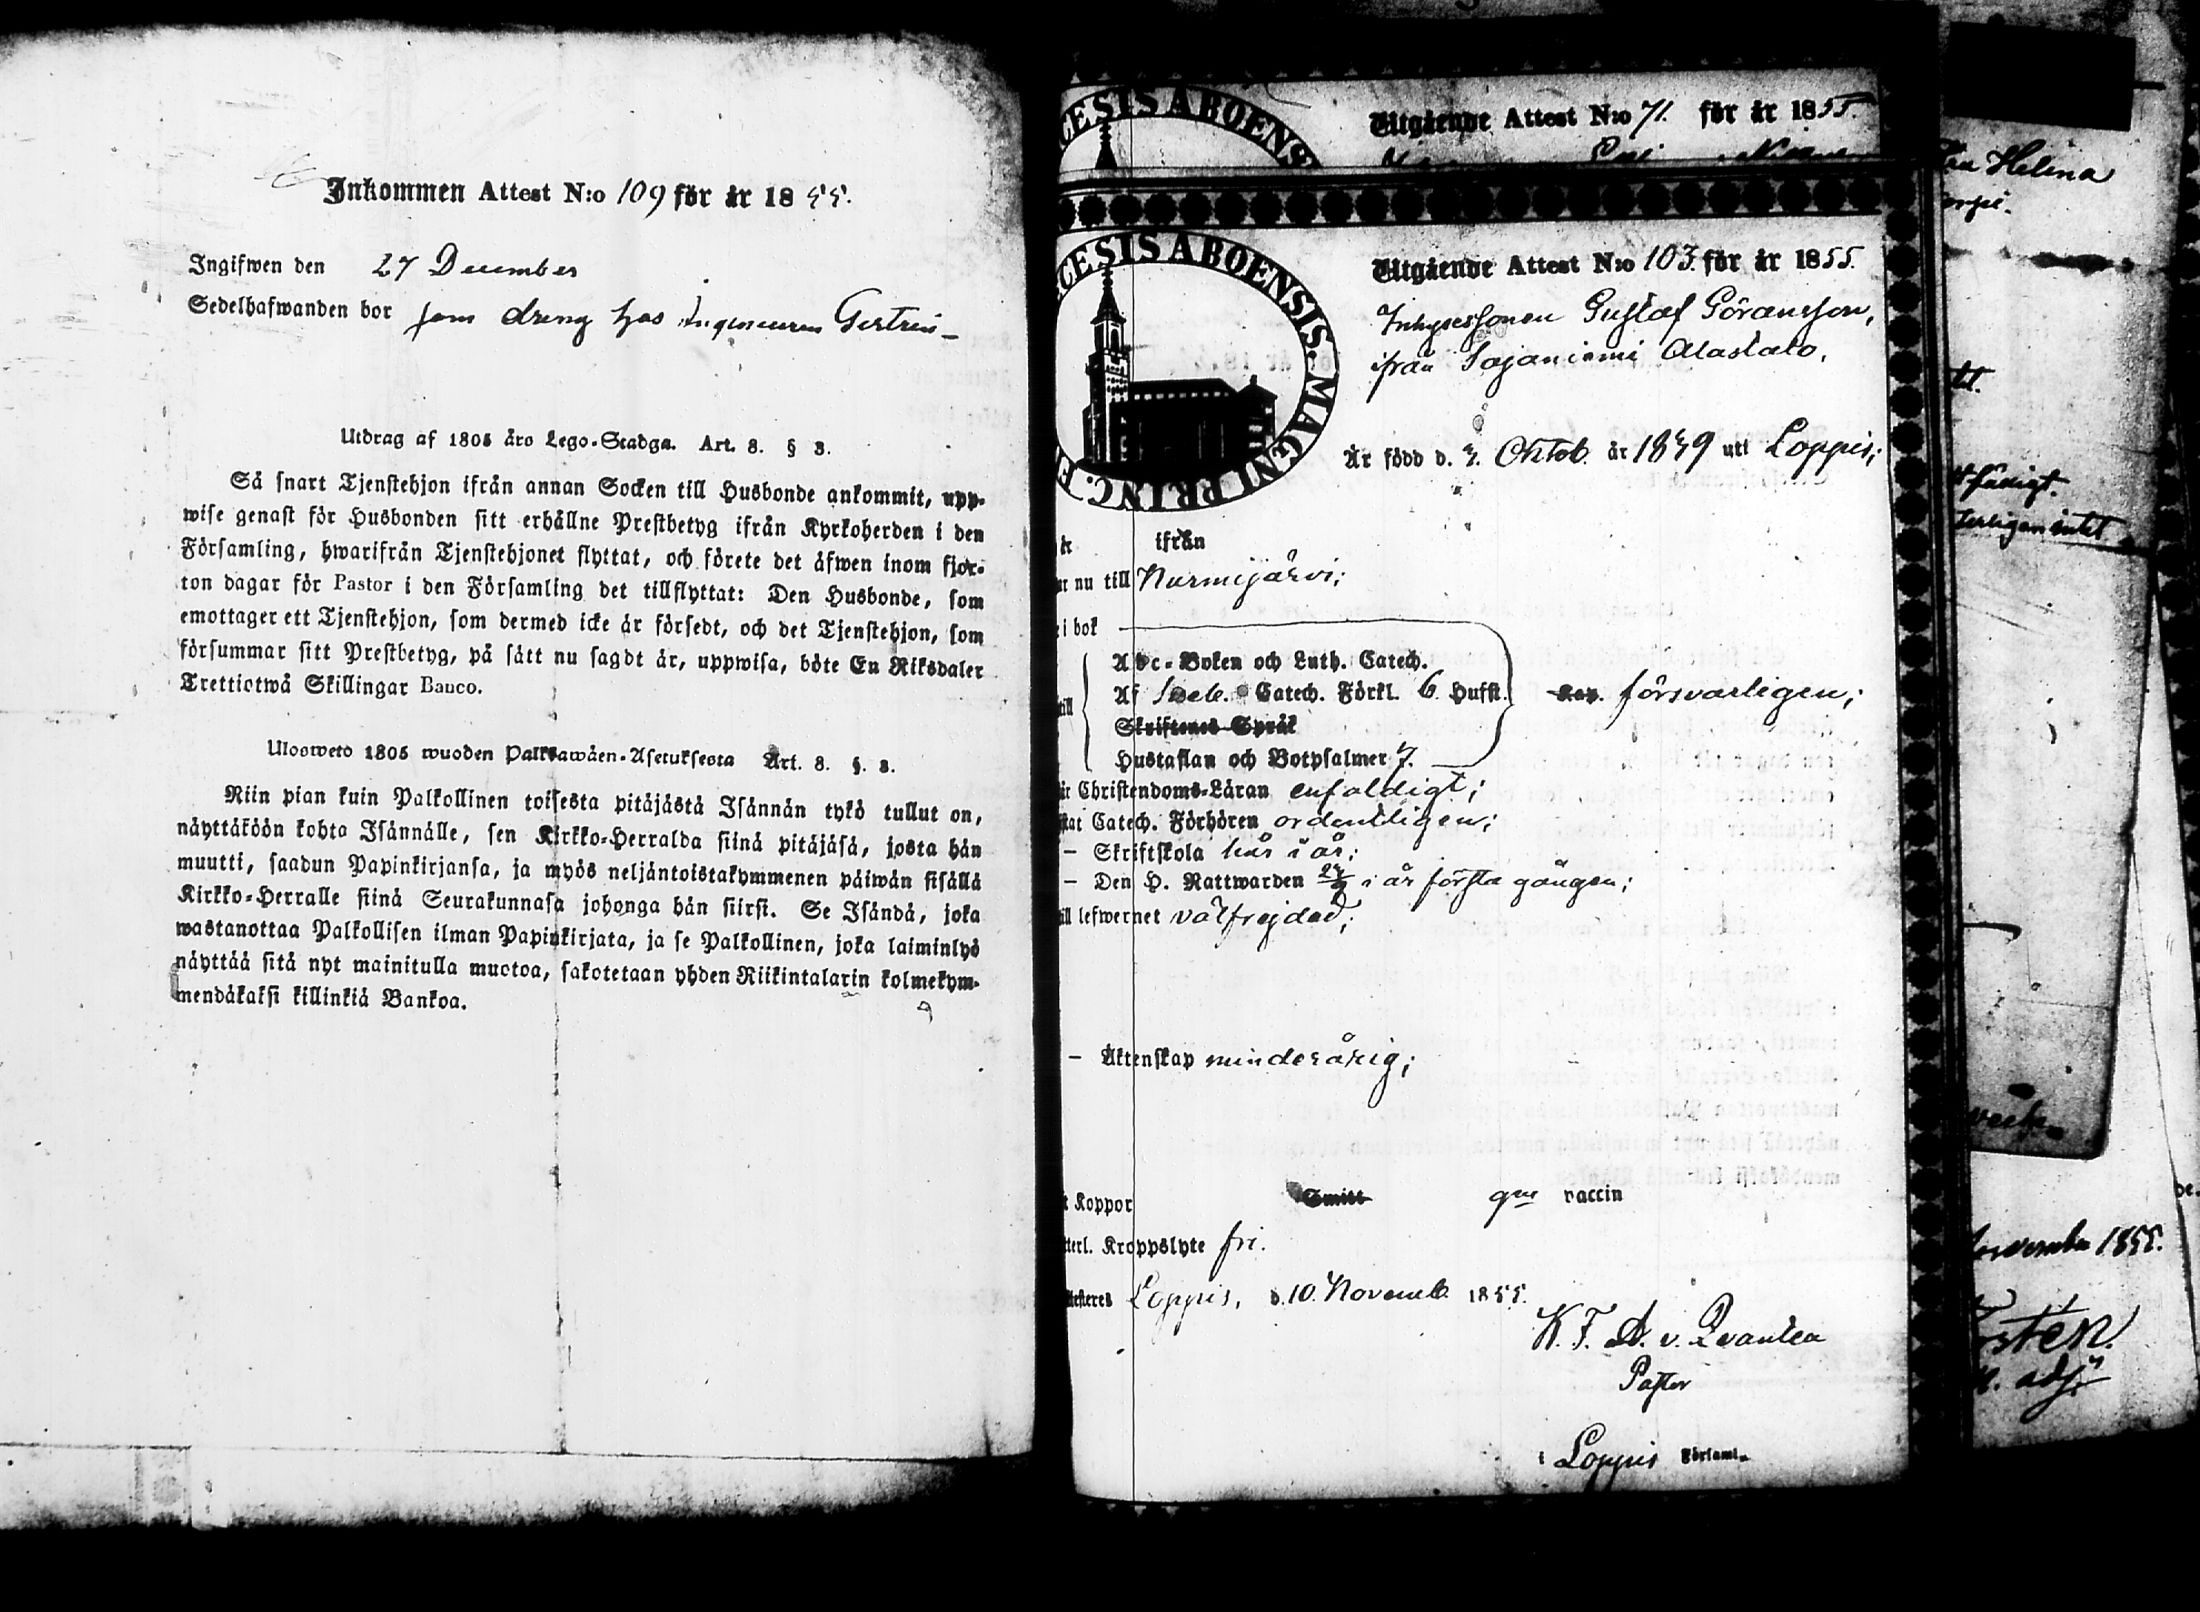 Inkommen Attest N:o 109 för år 1855.
Ingifwen den 27 December
Sedelhafwanden bor som dreng hos Ingenieuren
Utdrag af 1805 års Lego-Stadga. Art. 8. § 3.
Så snart Tjenstehjon ifrån annan Socken till Husbonde ankommit, upp-
wise genast för Husbonden sitt erhållne Prestbetyg ifrån Kyrkoherden i den
Församling, hwarifrån Tjenstehjonet flyttat, och förete det äfwen inom fjor-
ton dagar för Pastor i den Församling det tillflyttat: Den Husbonde, som
emottager ett Tjenstehjon, som dermed icke är försedt, och det Tjenstehjon, som
försummar sitt Prestbetyg, på sätt nu sagdt är, uppwisa, böte En Riksdaler
Trettiotwå Skillingar Banco.
Ulosweto 1805 wuoden Palkkawäen-Asetuksesta Art. 8. §. 3.
Niin pian kuin Palkollinen toisesta pitäjästä Isännän tykö tullut on,
näyttäköön kohta Isännälle, sen Kirkko-Herralda siinä pitäjäsä, josta hän
muutti, saadun Papinkirjansa, ja myös neljäntoistakymmenen päiwän sisällä
Kirkko-Herralle siinä Seurakunnasa johonga hän siirsi. Se Isändä, joka
wastanottaa Palkollisen ilman Papinkirjata, ja se Palkollinen, joka laiminlyö
näyttää sitä nyt mainitulla muotoa, sakotetaan yhden Riikintalarin kolmekym-
mendäkaksi killinkiä Bankoa.
CESIS ABOENS
Utgående Attest N:o 71. för år 1855.
CESIS ABOENSIS. MAGNI PRINC. F
Utgående Attest N:o 103. för år 1855.
Inhysessonen Gustaf Göransson,
ifrån Sajaniemi Alastalo,
Är född d. 3. Oktob. år 1839 uti Loppis;
ifrån
nu till Nurmijärvi;
i bok
Abc-Boken och Luth. Catech.
Af Sveb. Catech. Förkl. 6 Hufst. Kap. försvarligen;
Skriftenes Språk
Hustaflan och Botpsalmer 7.
Christendoms-Läran enfaldigt;
Catech. Förhören ordentligen;
– Skriftskola här i år;
– Den H. Nattwarden 27/9 i år första gången;
lefwernet välfrejdad;
– Äktenskap minderårig;
Koppor Smitt gm vaccin
Kroppslyte fri.
Loppis, d. 10. Novemb. 1855.
K. F. A. v. Qvanten
Pastor
i Loppis Församl.
Helina
November 1855.
adj.